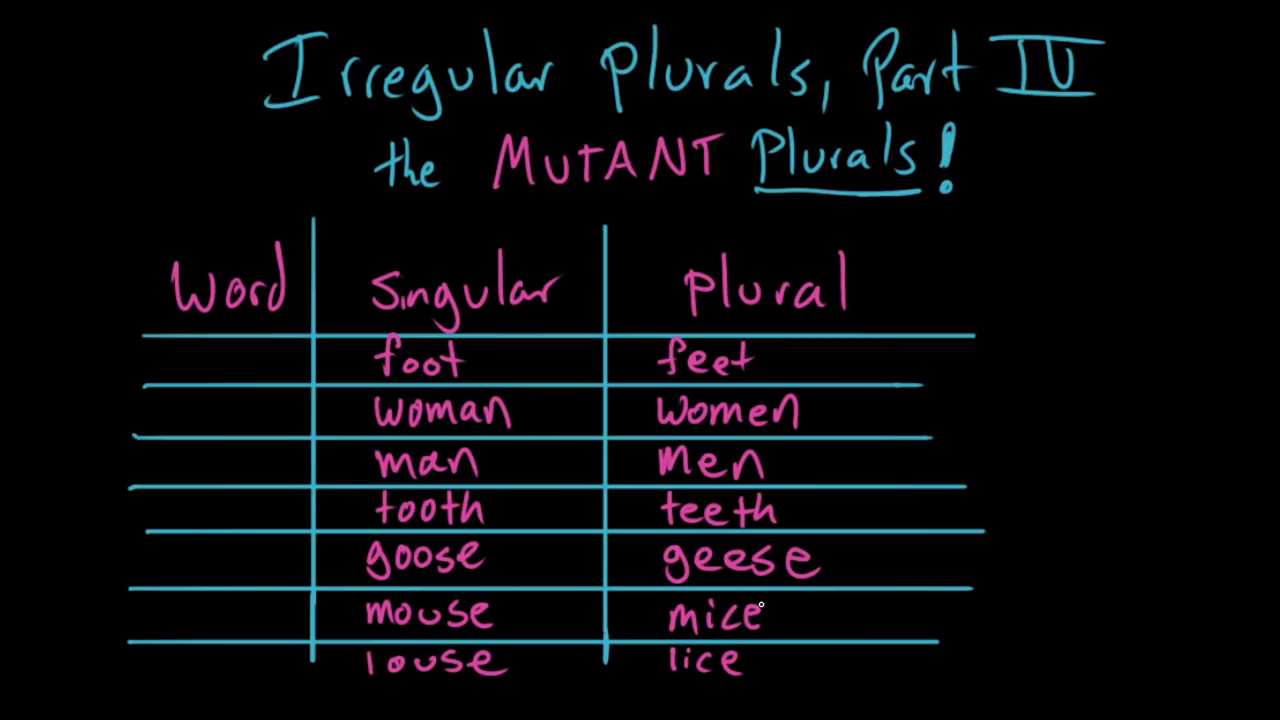 Irregular plurals, Part IV
the MUTANT Plurals!
Word singular plural
foot feet
woman women
man men
tooth teeth
goose geese
mouse mice
louse lice